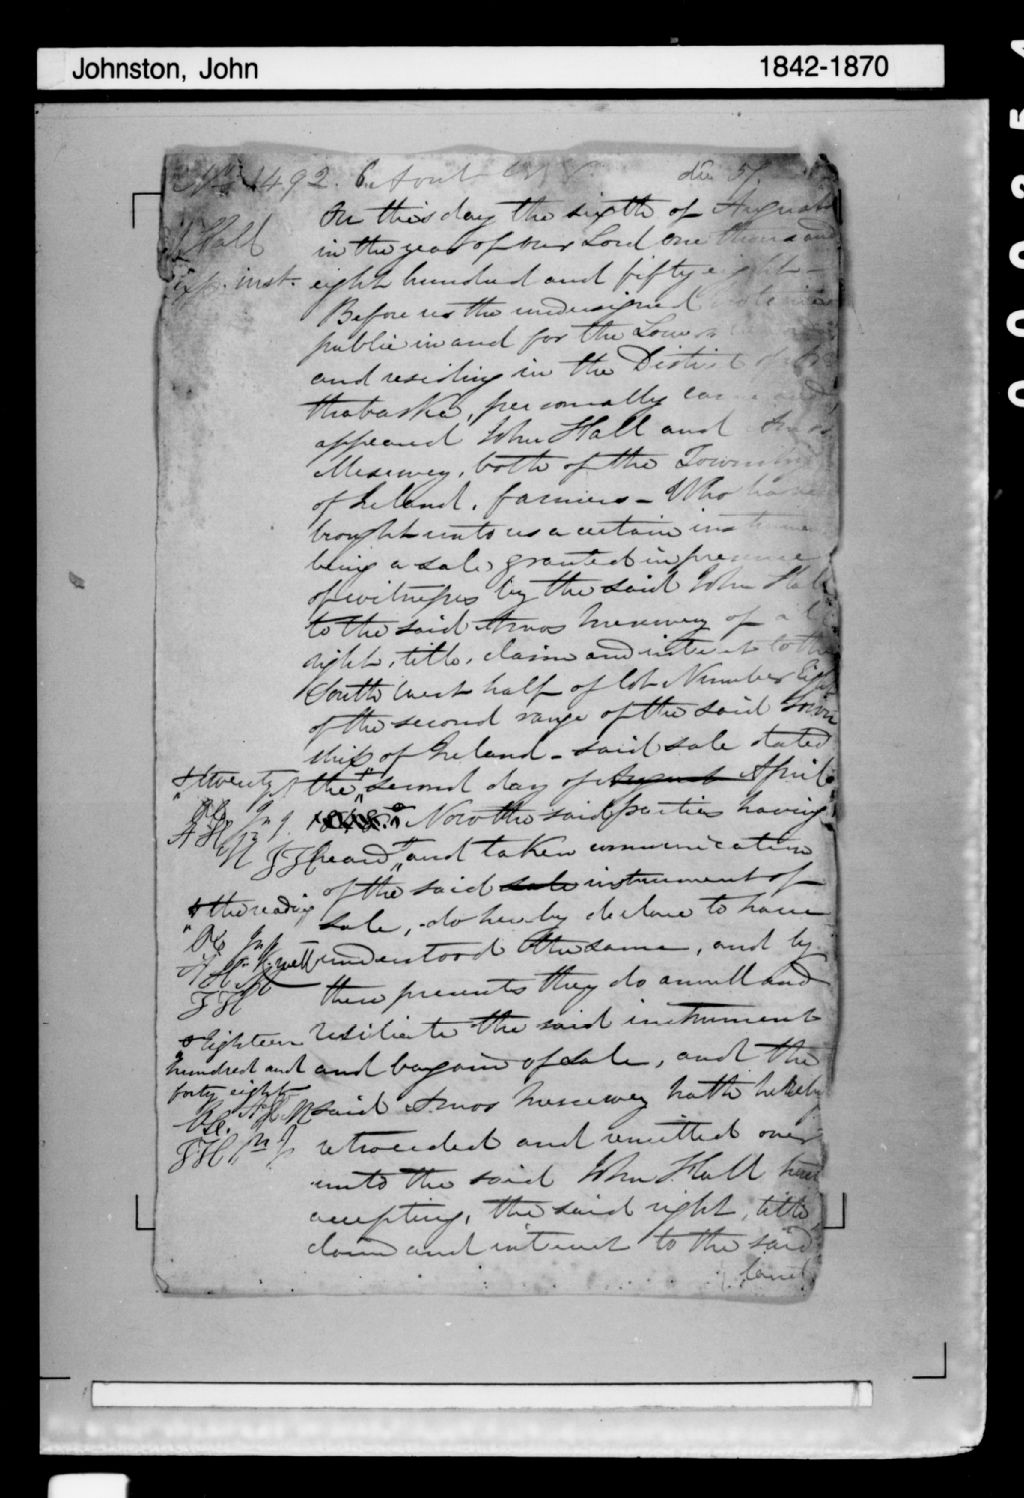 Johnston, John 1842-1870
No 1492. 6 Aout
J Hall
inst.
On this day the sixth of August
in the year of our Lord one thousand
eight hundred and fifty eight -
Before us the undersigned
public in and for the Lower
and residing in the District of
thabaska, personally came and
appeared John Hall and Amos
Meservey, both of the Township
of Ireland, farmers - Who have
brought unto us a certain instrument
being a sale, granted in presence
of witnesses by the said John Hall
to the said Amos Meservey of all
right, title, claim and interest to the
South West half of lot Number Eight
of the second range of the said Town
ship of Ireland - said sale dated
+ twenty the + second day of August April
1848. o Now the said parties having
J H heard + and taken communication
of the said sale instrument of
+ the reading sale, do hereby declare to have
understood the same, and by
these presents they do annull and
o Eighteen resiliate the said instrument
hundred and and bargain of sale, and the
forty eight said Amos Meservey hath hereby
retroceded and remitted over
unto the said John Hall hereof
accepting, the said right, title
claim and interest to the said
land